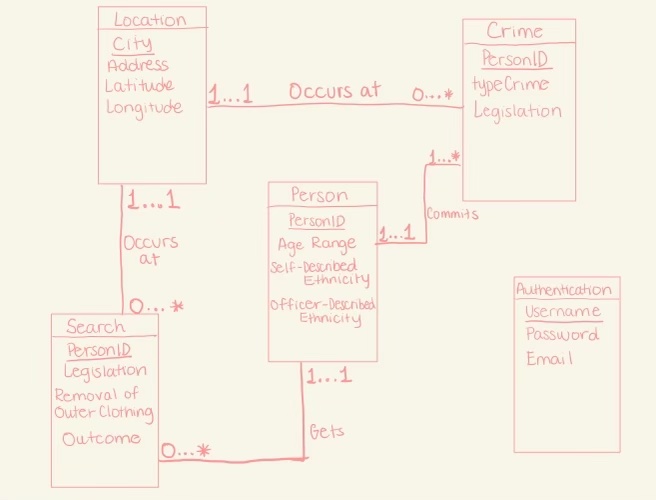 Location
City
Address
Latitude
Longitude
1...1
Occurs at
0...*
Crime
PersonID
typeCrime
Legislation
1...*
Commits
1...1
Person
PersonID
Age Range
Self-Described
Ethnicity
Officer-Described
Ethnicity
1...1
Occurs
at
0...*
Search
PersonID
Legislation
Removal of
Outer Clothing
Outcome
0...*
Gets
1...1
Authentication
Username
Password
Email